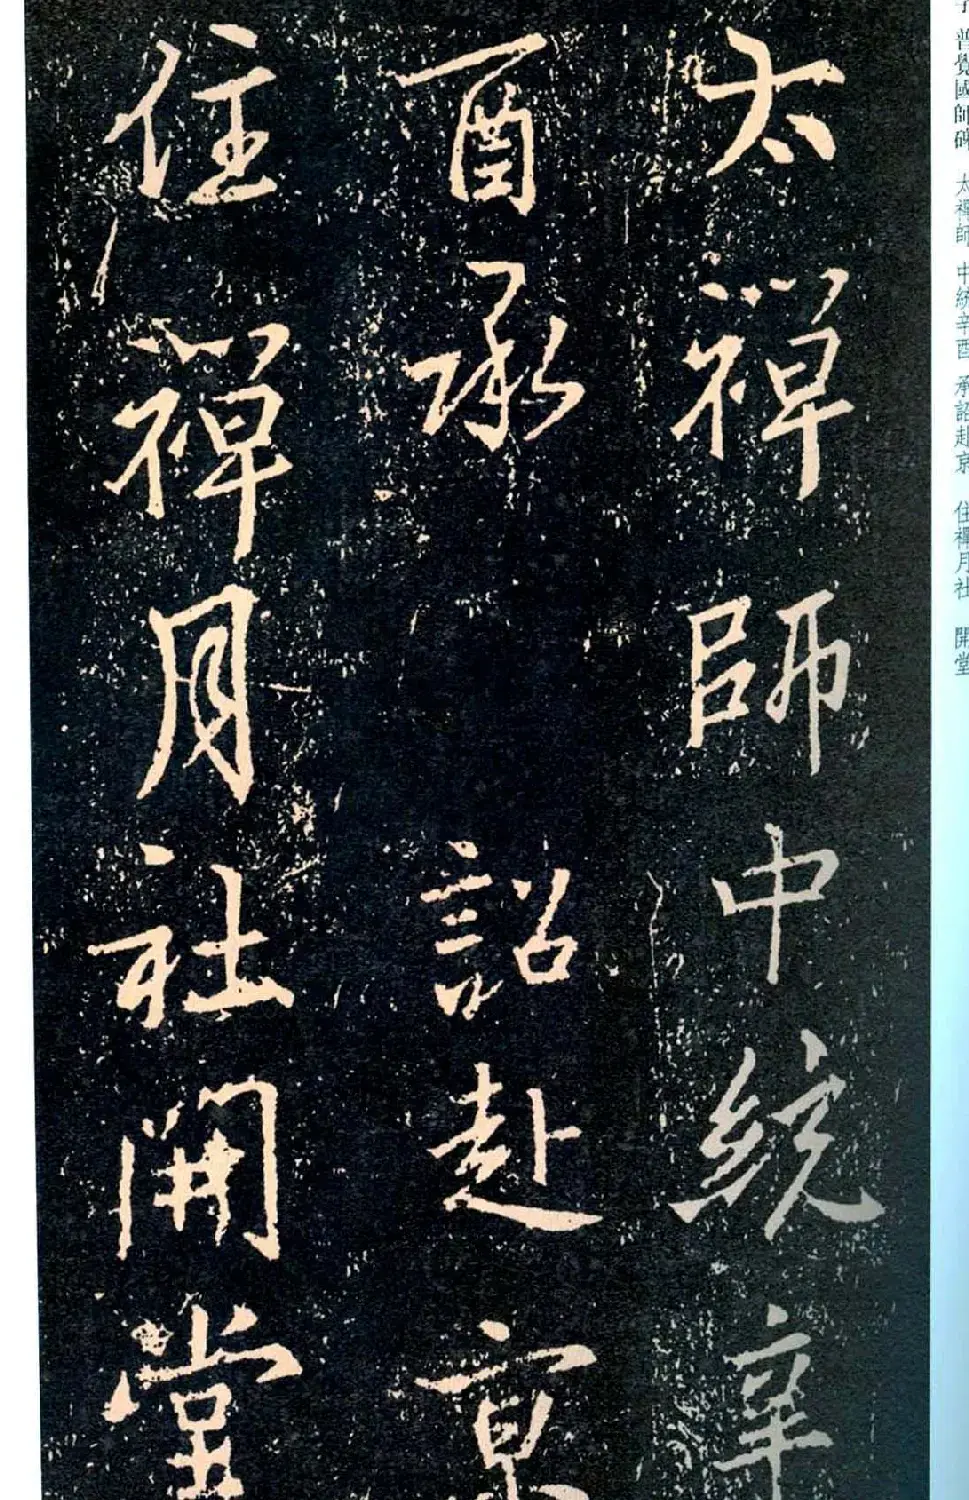 太禪師中統辛
酉承詔赴京
住禪月社開堂
普覺國師碑 太禪師 中統辛酉 承詔赴京 住禪月社 開堂